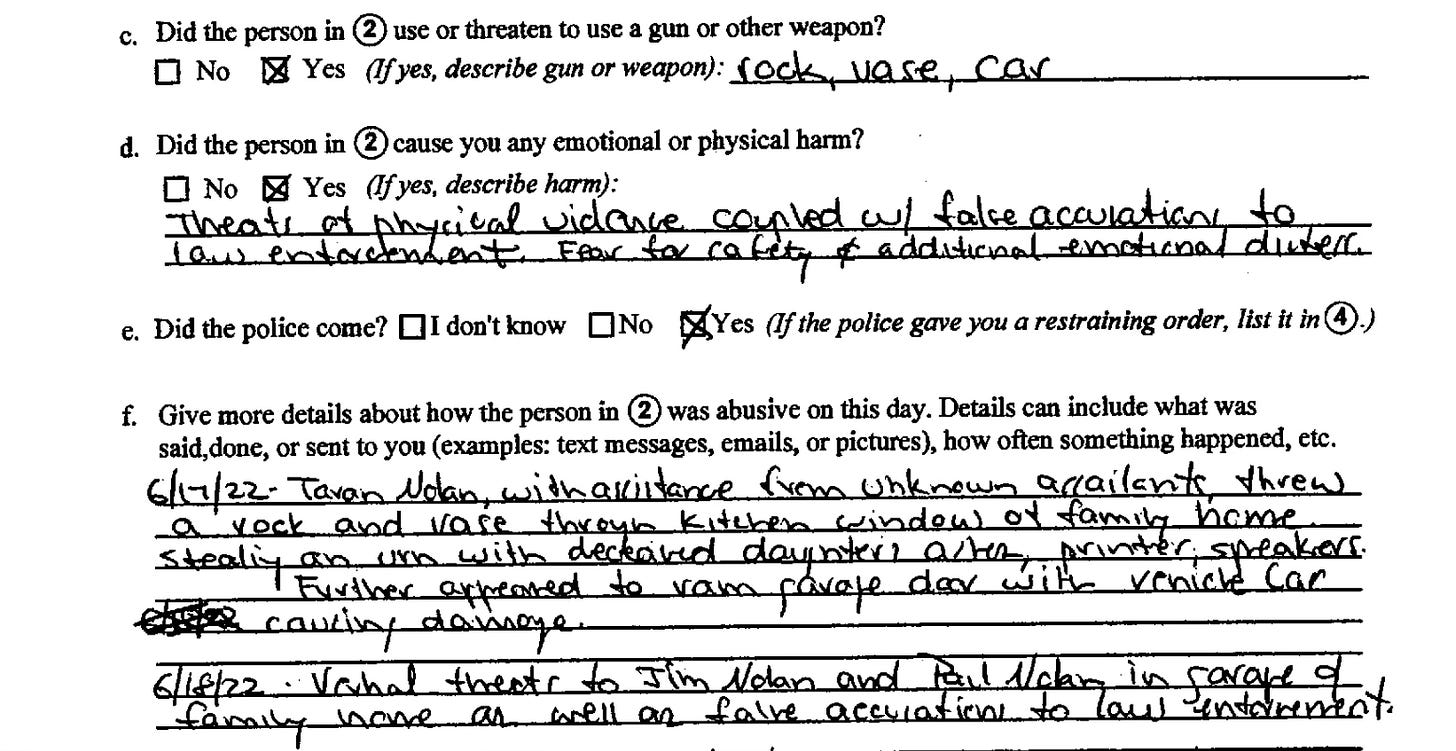 c. Did the person in ② use or threaten to use a gun or other weapon?
☐ No ☒ Yes (If yes, describe gun or weapon): rock, vase, car
d. Did the person in ② cause you any emotional or physical harm?
☐ No ☒ Yes (If yes, describe harm):
Threats of physical violence coupled w/ false accusations to
law enforcement. Fear for safety & additional emotional distress.
e. Did the police come? ☐ I don't know ☐ No ☒ Yes (If the police gave you a restraining order, list it in ④.)
f. Give more details about how the person in ② was abusive on this day. Details can include what was
said,done, or sent to you (examples: text messages, emails, or pictures), how often something happened, etc.
6/17/22 - Tavan Nolan, with assistance from unknown assailants, threw
a rock and vase through kitchen window of family home
stealing an urn with deceased daughters ashes, printer, speakers.
Further appeared to ram garage door with vehicle car
causing damage.
6/18/22 - Verbal threats to Jim Nolan and Paul Nolan in garage of
family home as well as false accusations to law enforcement.